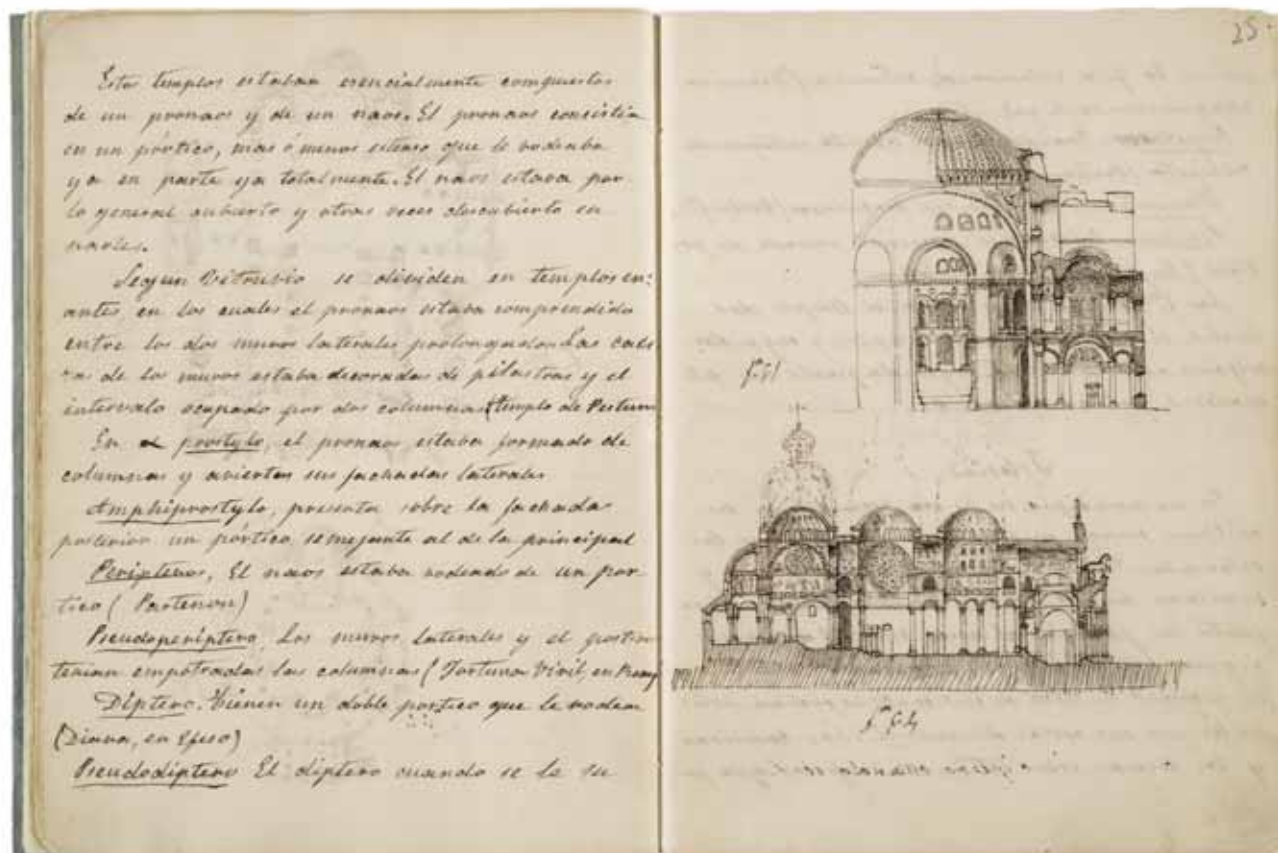 Estos templos estaban esencialmente compuestos
de un pronaos y de un naos. El pronaos consistia
en un pórtico, mas ó menos estenso que le rodeaba
ya en parte ya totalmente. El naos estava por
lo general cubierto y otras veces descubierto en
partes.
Segun Vitrubio se dividen en templos en:
antes en los cuales el pronaos estaba comprendido
entre los dos muros laterales prolongados. Las cabe
zas de los muros estaba decoradas de pilastras y el
intervalo ocupado por dos columnas (templo de Pestum
En prostylo, el pronaos estaba formado de
columnas y aviertas sus fachadas laterales
Amphiprostylo, presenta sobre la fachada
posterior un pórtico semejante al de la principal
Peripteros, El naos estaba rodeado de un por
tico ( Partenon)
Pseudoperiptero, Los muros laterales y el
tenian empotradas las columnas ( Fortuna Viril, en
Diptero. Tienen un doble portico que le rodean
(Diana, en Efeso)
Pseudodiptero El diptero cuando se le su
25